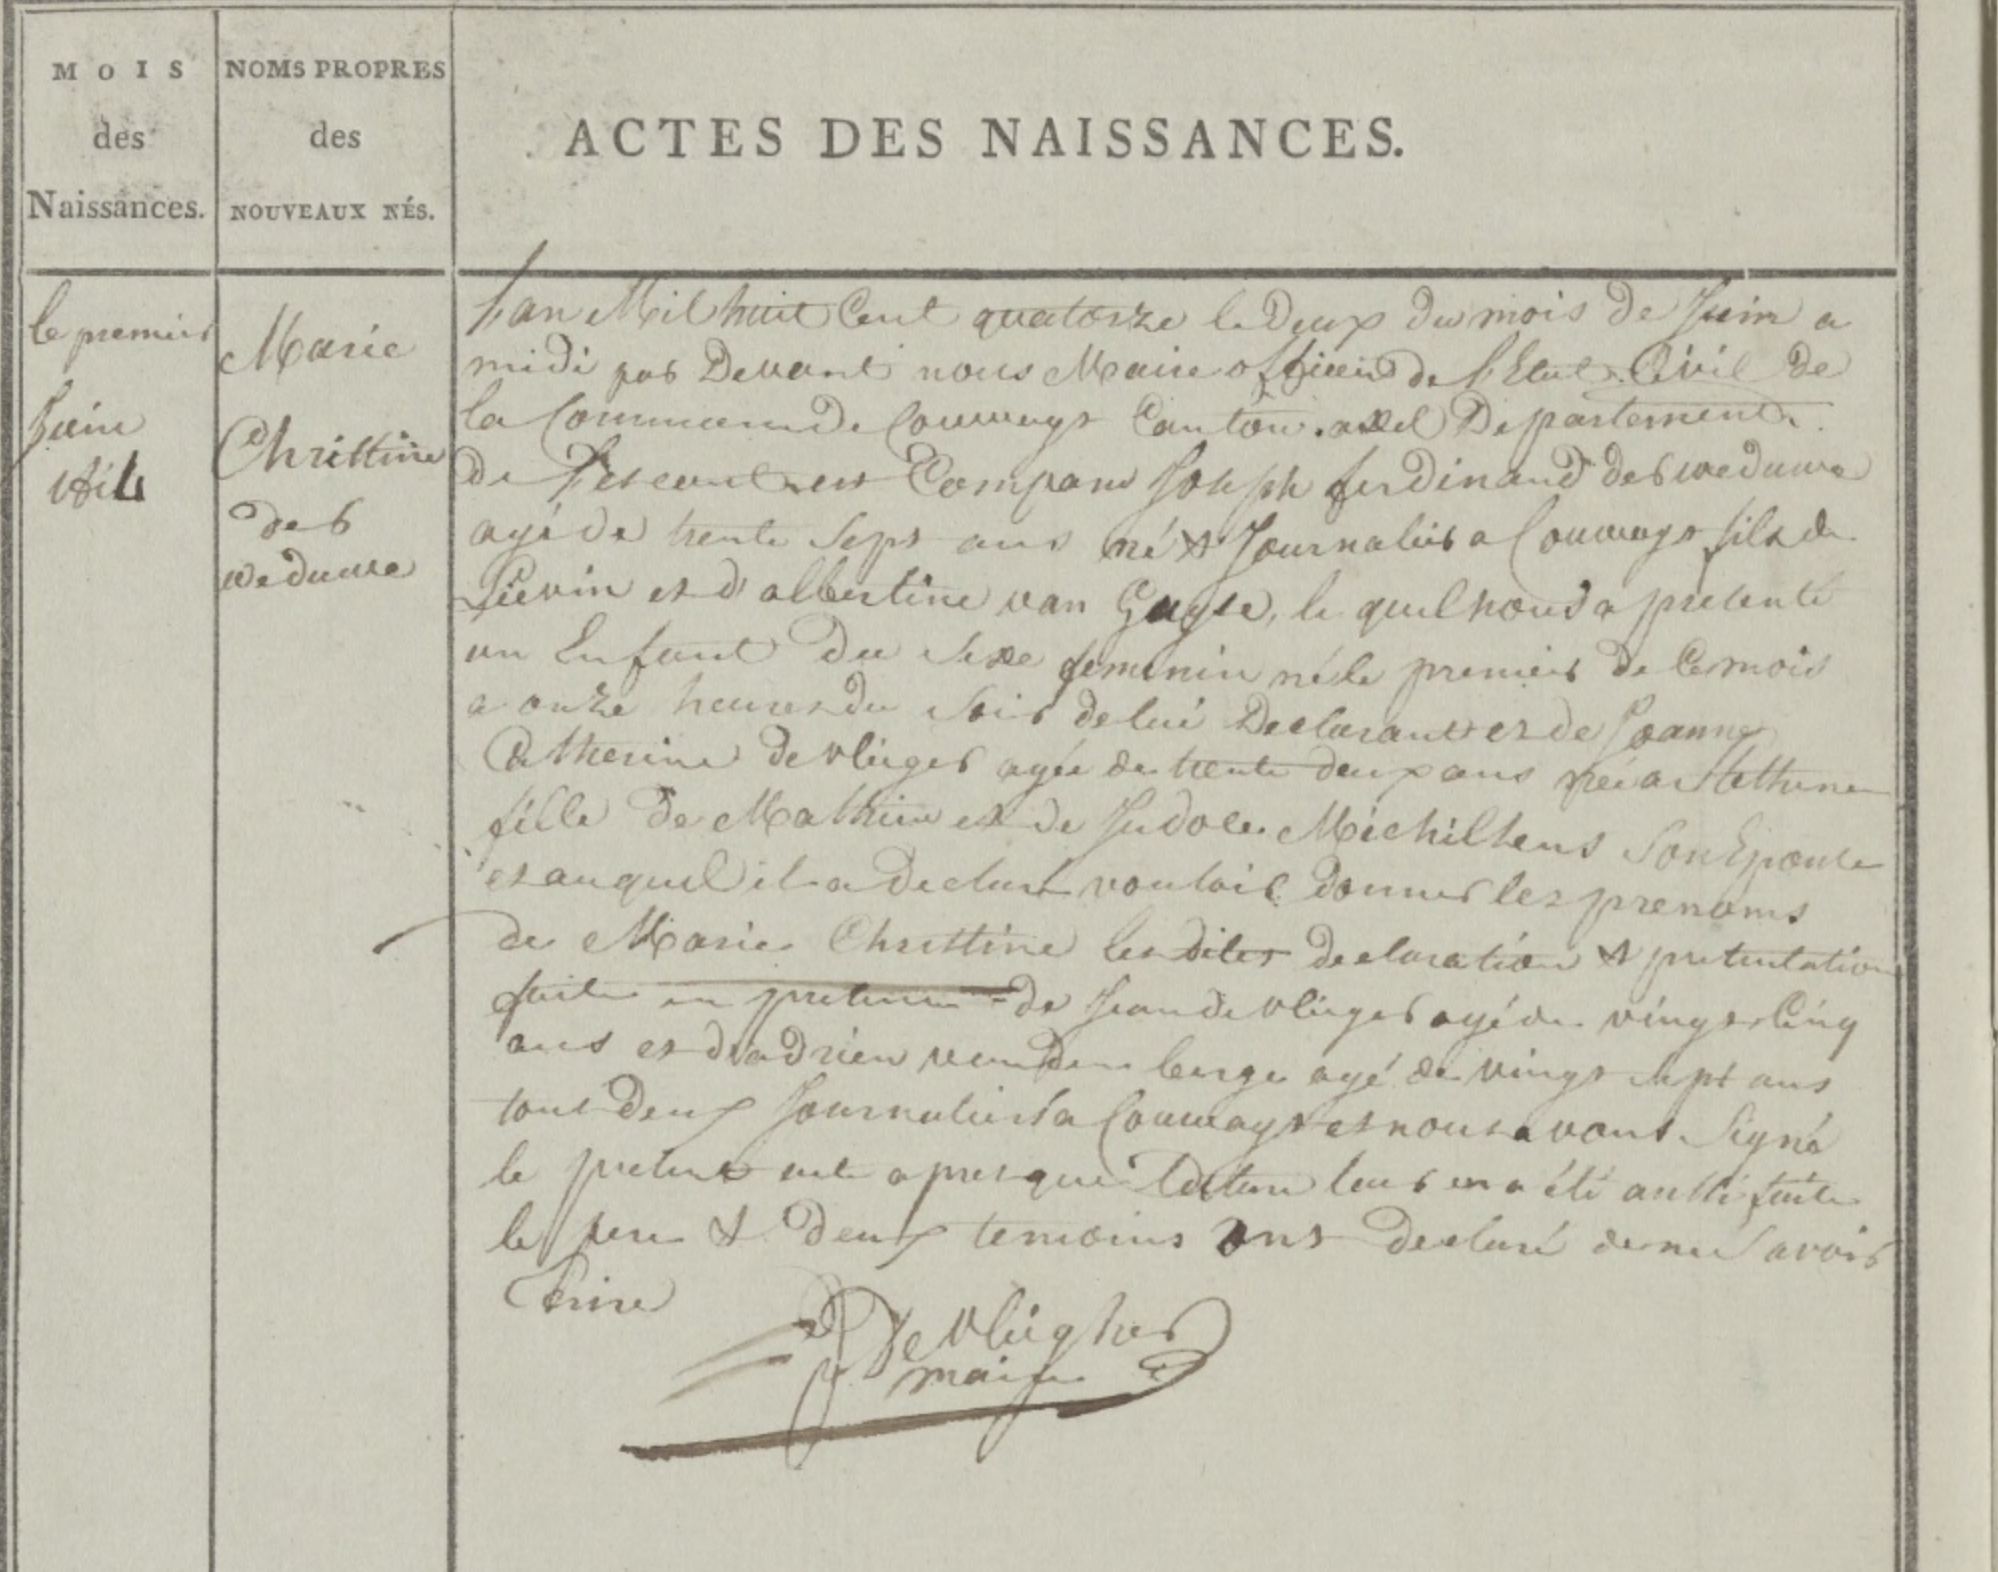 MOIS
des
Naissances.
NOMS PROPRES
des
NOUVEAUX NÉS.
ACTES DES NAISSANCES.
le premier
Juin
Marie
Christine
der
weduwe
l'an Mil huit Cent quatorze le Deux du mois de Juin a
midi par Devant nous Maire officier de l'Etat Civil de
la Commune de Couwags Canton axel Departement
de l'escaut est Comparu Joseph ferdinand der weduwe
agé de trente Sept ans né & Journalier a Couwags fils de
Lievin et d'albertine van Gayse, le quel nous a presenté
un Enfant du Sexe feminin né le premier de Ce mois
a onze heures du Soir de lui Declarant et de Joanne
Catherine de vlieger agée de trente deux ans née a
fille de Mathieu et de Judoce Michilsens Son Epouse
et auquel il a declaré vouloir donner les prenoms
de Marie Christine les dites declaration & presentation
faite en presence de Jean de vlieger agé de vingt Cinq
ans et d'adrien van den berge agé de vingt sept ans
tout deux Journaliers a Couwags et nous avons Signé
le present acte apres que lecture leur en a été aussi faite
le pere & deux temoins ont declaré de ne Savoir
Ecrire
De Vliegher
maire